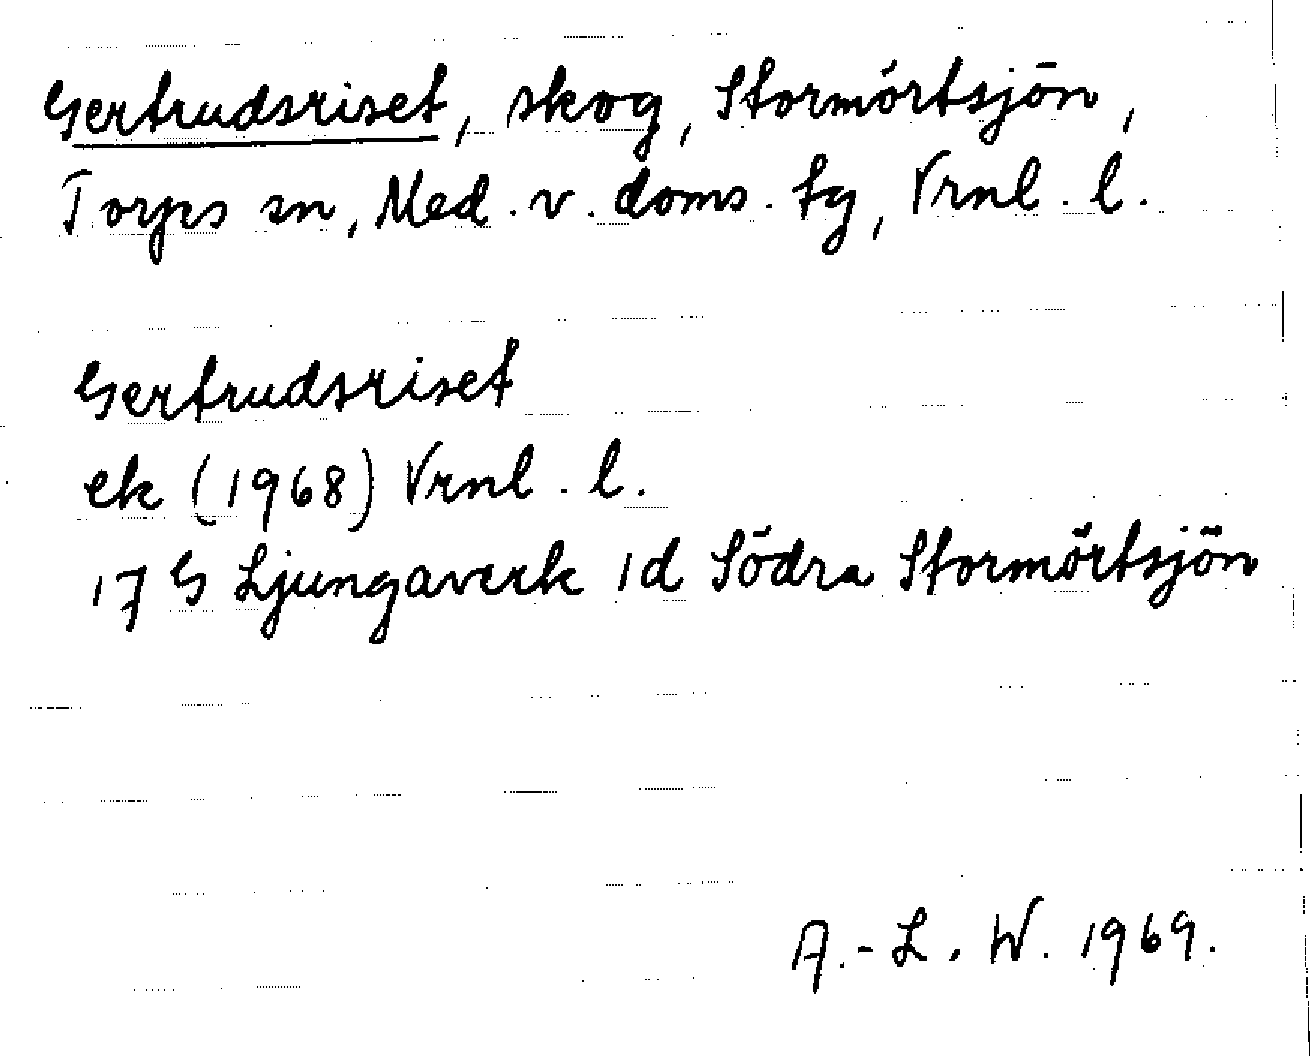 Gertrudsriset, skog, Stormörtsjön,
Torps sn, Med. v. doms. tg, Vrnl. l.
Gertrudsriset
ek (1968) Vrnl. l.
17 G Ljungaverk 1d Södra Stormörtsjön
A.-L. W. 1969.